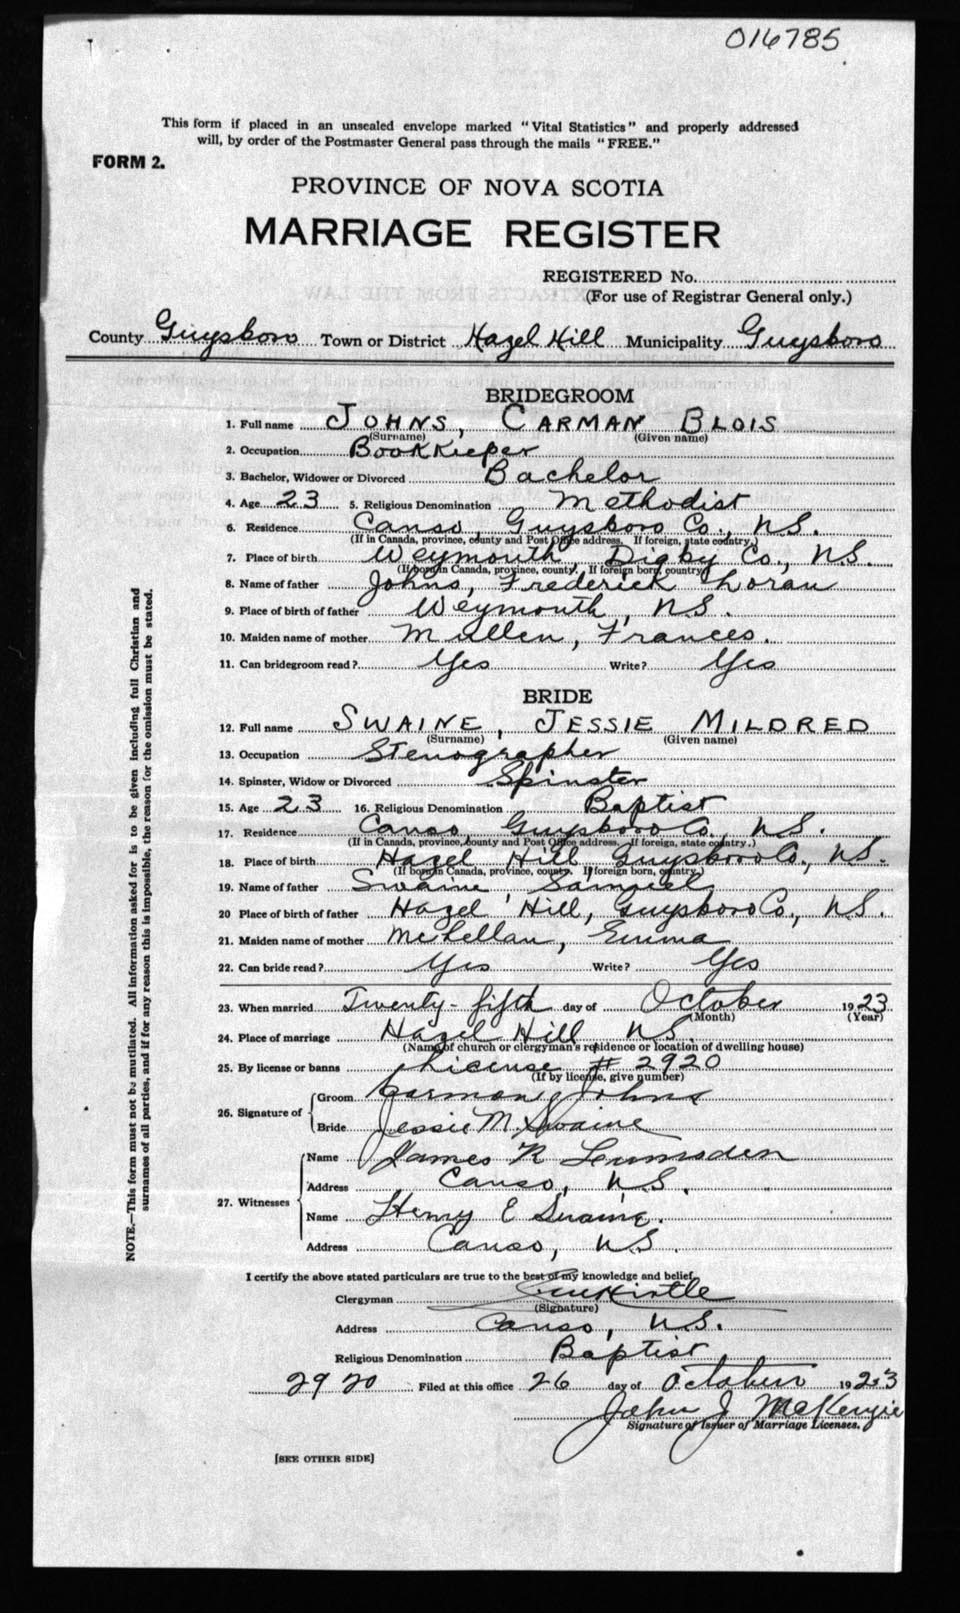 016785
This form if placed in an unsealed envelope marked "Vital Statistics" and properly addressed
will, by order of the Postmaster General pass through the mails "FREE."
FORM 2.
PROVINCE OF NOVA SCOTIA
MARRIAGE REGISTER
REGISTERED No.
(For use of Registrar General only.)
County Guysboro Town or District Hazel Hill Municipality Guysboro
BRIDEGROOM
1. Full name JOHNS, CARMAN BLOIS
(Surname) (Given name)
2. Occupation Bookkeeper
3. Bachelor, Widower or Divorced Bachelor
4. Age 23 5. Religious Denomination Methodist
6. Residence Canso, Guysboro Co., N.S.
(If in Canada, province, county and Post Office address. If foreign, state country.)
7. Place of birth Weymouth Digby Co., N.S.
(If born in Canada, province, county. If foreign born, country)
8. Name of father Johns, Frederick Loran
9. Place of birth of father Weymouth, N.S.
10. Maiden name of mother Mullen, Frances.
11. Can bridegroom read? Yes Write? Yes
BRIDE
12. Full name SWAINE, JESSIE MILDRED
(Surname) (Given name)
13. Occupation Stenographer
14. Spinster, Widow or Divorced Spinster
15. Age 23 16. Religious Denomination Baptist
17. Residence Canso, Guysboro Co., N.S.
(If in Canada, province, county and Post Office address. If foreign, state country.)
18. Place of birth Hazel Hill, Guysboro Co., N.S.
(If born in Canada, province, county. If foreign born, country.)
19. Name of father Swaine Samuel
20 Place of birth of father Hazel Hill, Guysboro Co., N.S.
21. Maiden name of mother McLellan, Emma
22. Can bride read? Yes Write? Yes
23. When married Twenty-fifth day of October 1923
(Month) (Year)
24. Place of marriage Hazel Hill, N.S.
(Name of church or clergyman's residence or location of dwelling house)
25. By license or banns License # 2920
(If by license, give number)
26. Signature of Groom Carman Johns
Bride Jessie M. Swaine
27. Witnesses Name James R Lumsden
Address Canso, N.S.
Name Henry E Swaine.
Address Canso, N.S.
I certify the above stated particulars are true to the best of my knowledge and belief.
Clergyman
(Signature)
Address Canso, N.S.
Religious Denomination Baptist
2920 Filed at this office 26 day of October 1923
John J McKenzie
Signature of Issuer of Marriage Licenses.
[SEE OTHER SIDE]
NOTE.—This form must not be mutilated. All information asked for is to be given including full Christian and
surnames of all parties, and if for any reason this is impossible, the reason for the omission must be stated.